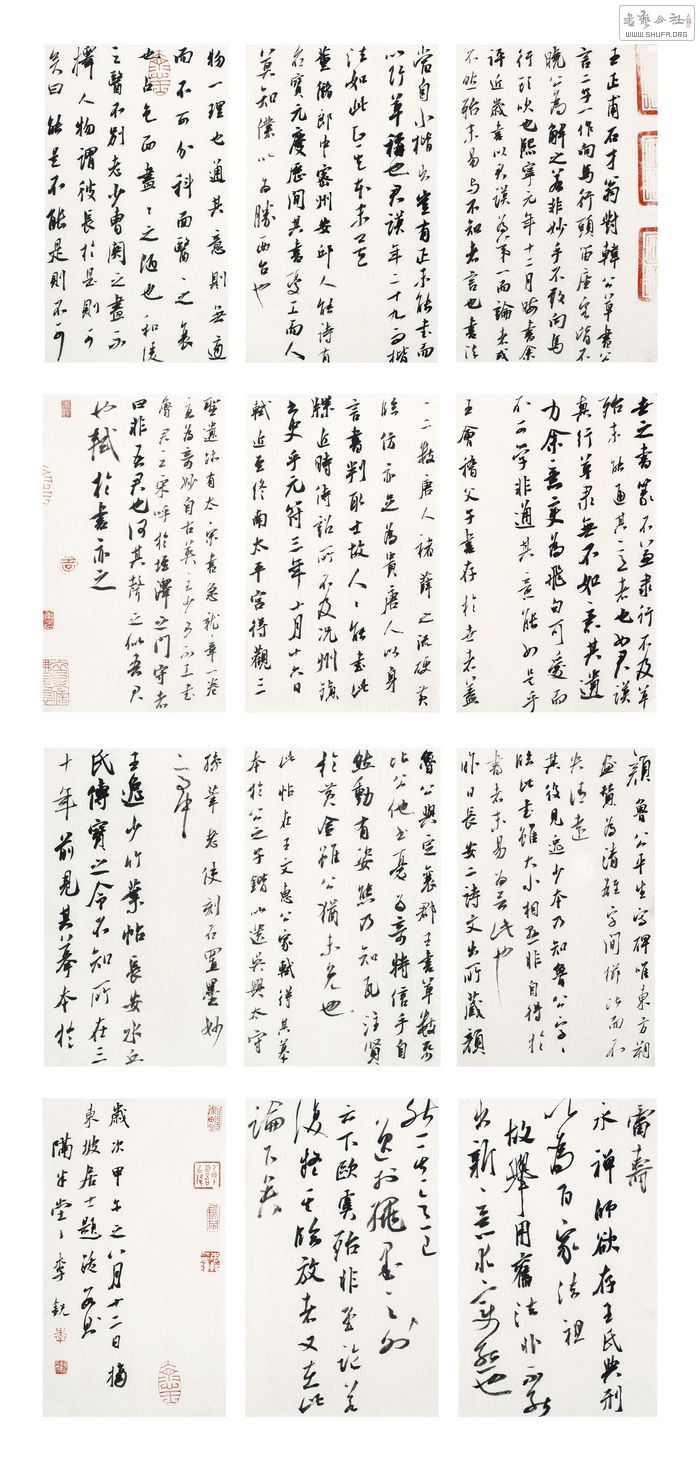 書藝公社
WWW.SHUFA.ORG
王正甫石才翁對韓公草書公
言二字一作向馬行頭笛座客皆不
曉公為解之若非妙手不敢向馬
行頭吹也熙寧元年十二月晦書余
評近歲書以君謨為第一而論者或
不然殆未易與不知者言也書法
當自小楷出豈有正未能書而
以行草稱也君謨年二十九而楷
法如此知其本末矣
董儲郎中密州安邱人能詩有
名寶元慶曆間其書尤工而人
莫知僕以為勝西台也
物一理也通其意則無適
而不可分科而醫醫之衰
也占色而畫畫之陋也和緩
之醫不別老少曹吳之畫不
擇人物謂彼長於是則可
矣曰能是不能是則不可
世之書篆不兼隸行不及草
殆未能通其意者也如君謨
真行草隸無不如意其遺
力余意變為飛白可愛而
不可學非通其意能如是乎
王會稽父子書存於世者蓋
一二數唐人褚薛之流硬黃
臨仿亦足為貴唐人以身
言書判取士故人〻能書此
牒近時待詔所不及況州鎮
書史乎元符三年十月十六日
軾近至終南太平宮得觀三
聖遺迹有太宗書急就章一卷
為奇妙自古英主少有不工書
魯君之宋呼於垤澤之門守者
曰非吾君也何其聲之似吾君
也軾於書亦云
顏魯公平生寫碑唯東方朔
畫贊為清雄字間櫛比而不
失清遠
其後見逸少本乃知魯公字〻
臨此書雖大小相懸非自得於
書者未易為言此也
昨日長安二詩文出所藏顏
魯公與定襄郡王書草數紙
比公他書尤為奇特信手自
然動有姿態乃知瓦注賢
於黃金雖公猶未免也
此帖在王文惠公家軾得其摹
本於公之子鍇以遺吳興太守
孫莘老使刻石置墨妙
亭中
王逸少竹葉帖長安水丘
氏傳寶之今不知所在三
十年前見其摹本於
雷壽
永禪師欲存王氏典刑
以為百家法祖
故舉用舊法非不能
出新〻意求變態也
然其意已
逸於繩墨之外
云下歐虞殆非至論若
復疑其臨放者又在此
論下矣
歲次甲午之八月十二日摘
東坡居士題跋數則
半堂〻李銳